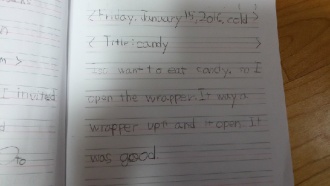 <Friday, January 1th, 2015, cold>
< Title: candy >
I want to eat candy. so I
open the wrapper. It was a
wrapper up and open. It
was good.
I invited
to